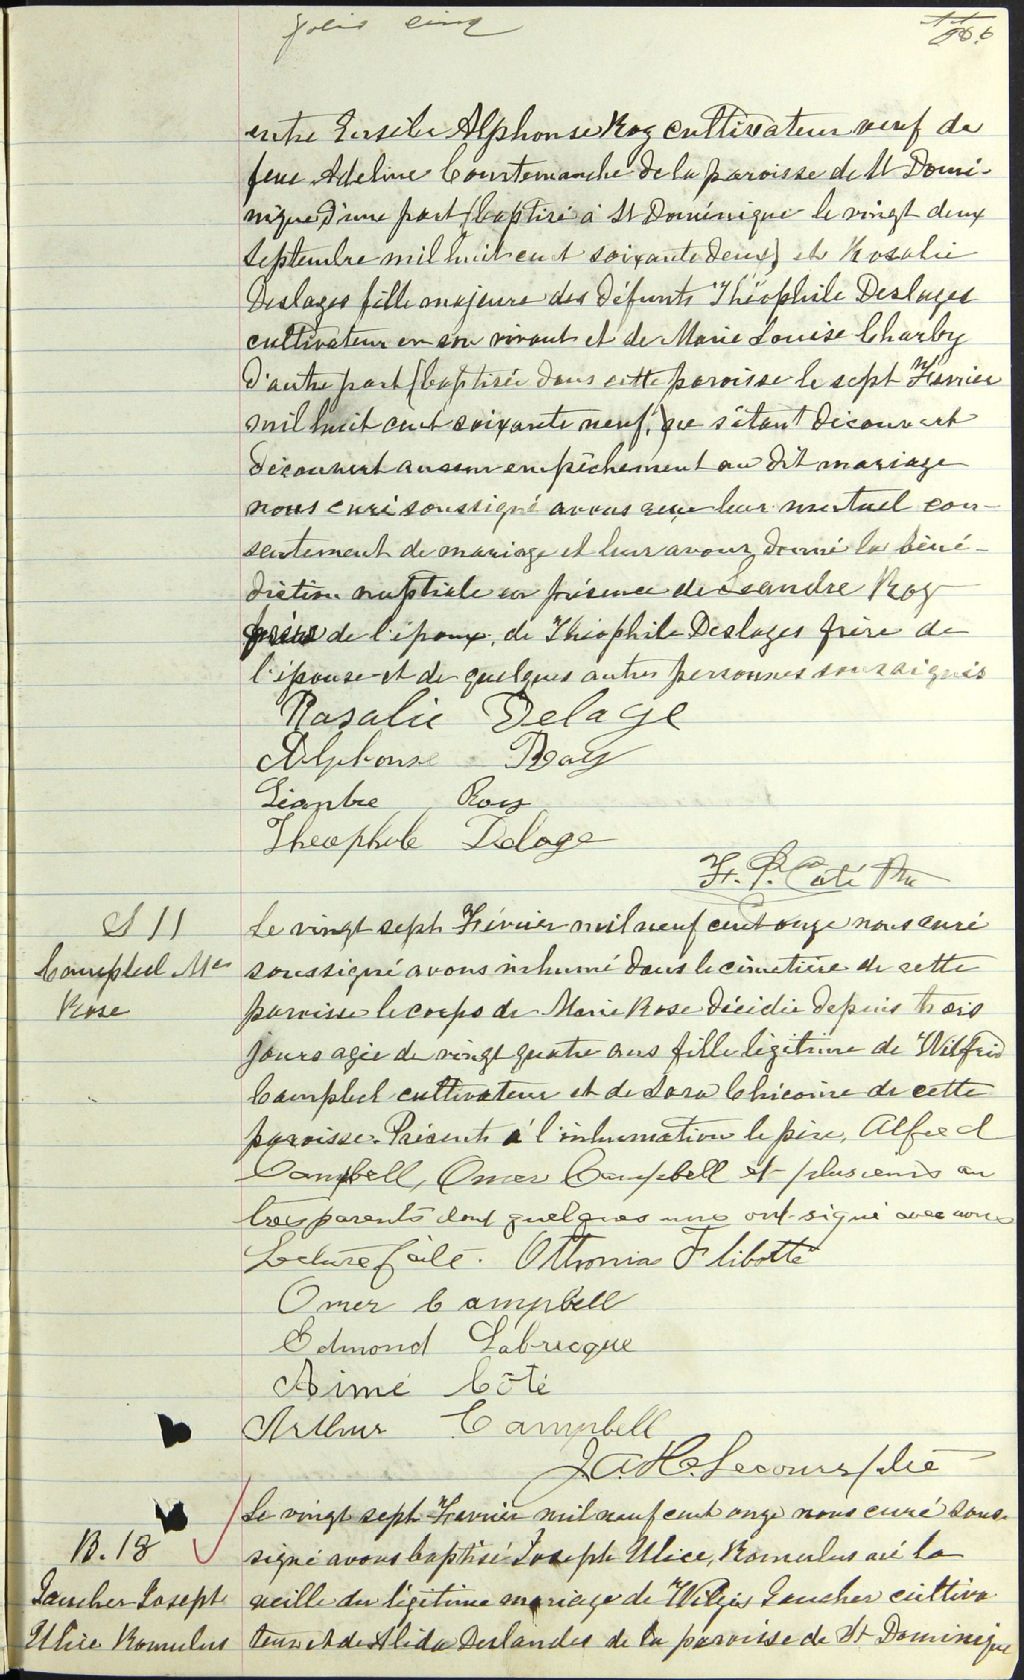 folio cinq
entre Ersilie Alphonse Roy cultivateur veuf de
feue Adeline Courtemanche de la paroisse de St Domi-
nique d'une part (baptisé à St Dominique le vingt deux
Septembre mil huit cent soixante deux) et Rosalie
Deslages fille majeure des défunts Théophile Deslages
cultivateur en son vivant et de Marie Louise Charby
d'autre part (baptisée dans cette paroisse le sept Février
mil huit cent soixante neuf,) ne s'étant découvert
découvert aucun empêchement au dit mariage
nous curé soussigné avons reçu leur mutuel con-
sentement de mariage et leur avons donné la béné-
diction nuptiale en présence de Léandre Roy
de l'époux, de Théophile Deslages frère de
l'épouse et de quelques autres personnes soussignés
Rosalie Delage
Alphonse Roy
Léandre Roy
Theophile Delage
F. P. Coté Ptre
S 11
Campbel Mie
Rose
Le vingt sept Février mil neuf cent onze nous curé
soussigné avons inhumé dans le cimetière de cette
paroisse le corps de Marie Rose décédée depuis trois
jours agée de vingt quatre ans fille légitime de Wilfrid
Campbel cultivateur et de Lora Chicoine de cette
paroisse. Présents à l'inhumation le père, Alfred
Campbell, Omer Campbell et plusieurs au
tres parents dont quelques uns ont signé avec nous
Lecture faite. Othonia Flibotte
Omer Campbell
Edmond Labrecque
Aimé Côté
Arthur Campbell
J. A. H. Lecours, ptre
B. 18
Gaucher Joseph
Ulice Romulus
Le vingt sept Fevrier mil neuf cent onze nous curé sous-
signé avons baptisé Joseph Ulice, Romulus né la
veille du légitime mariage de Wilgis Gaucher cultiva
teur et de Alida Deslandes de la paroisse de St Dominique